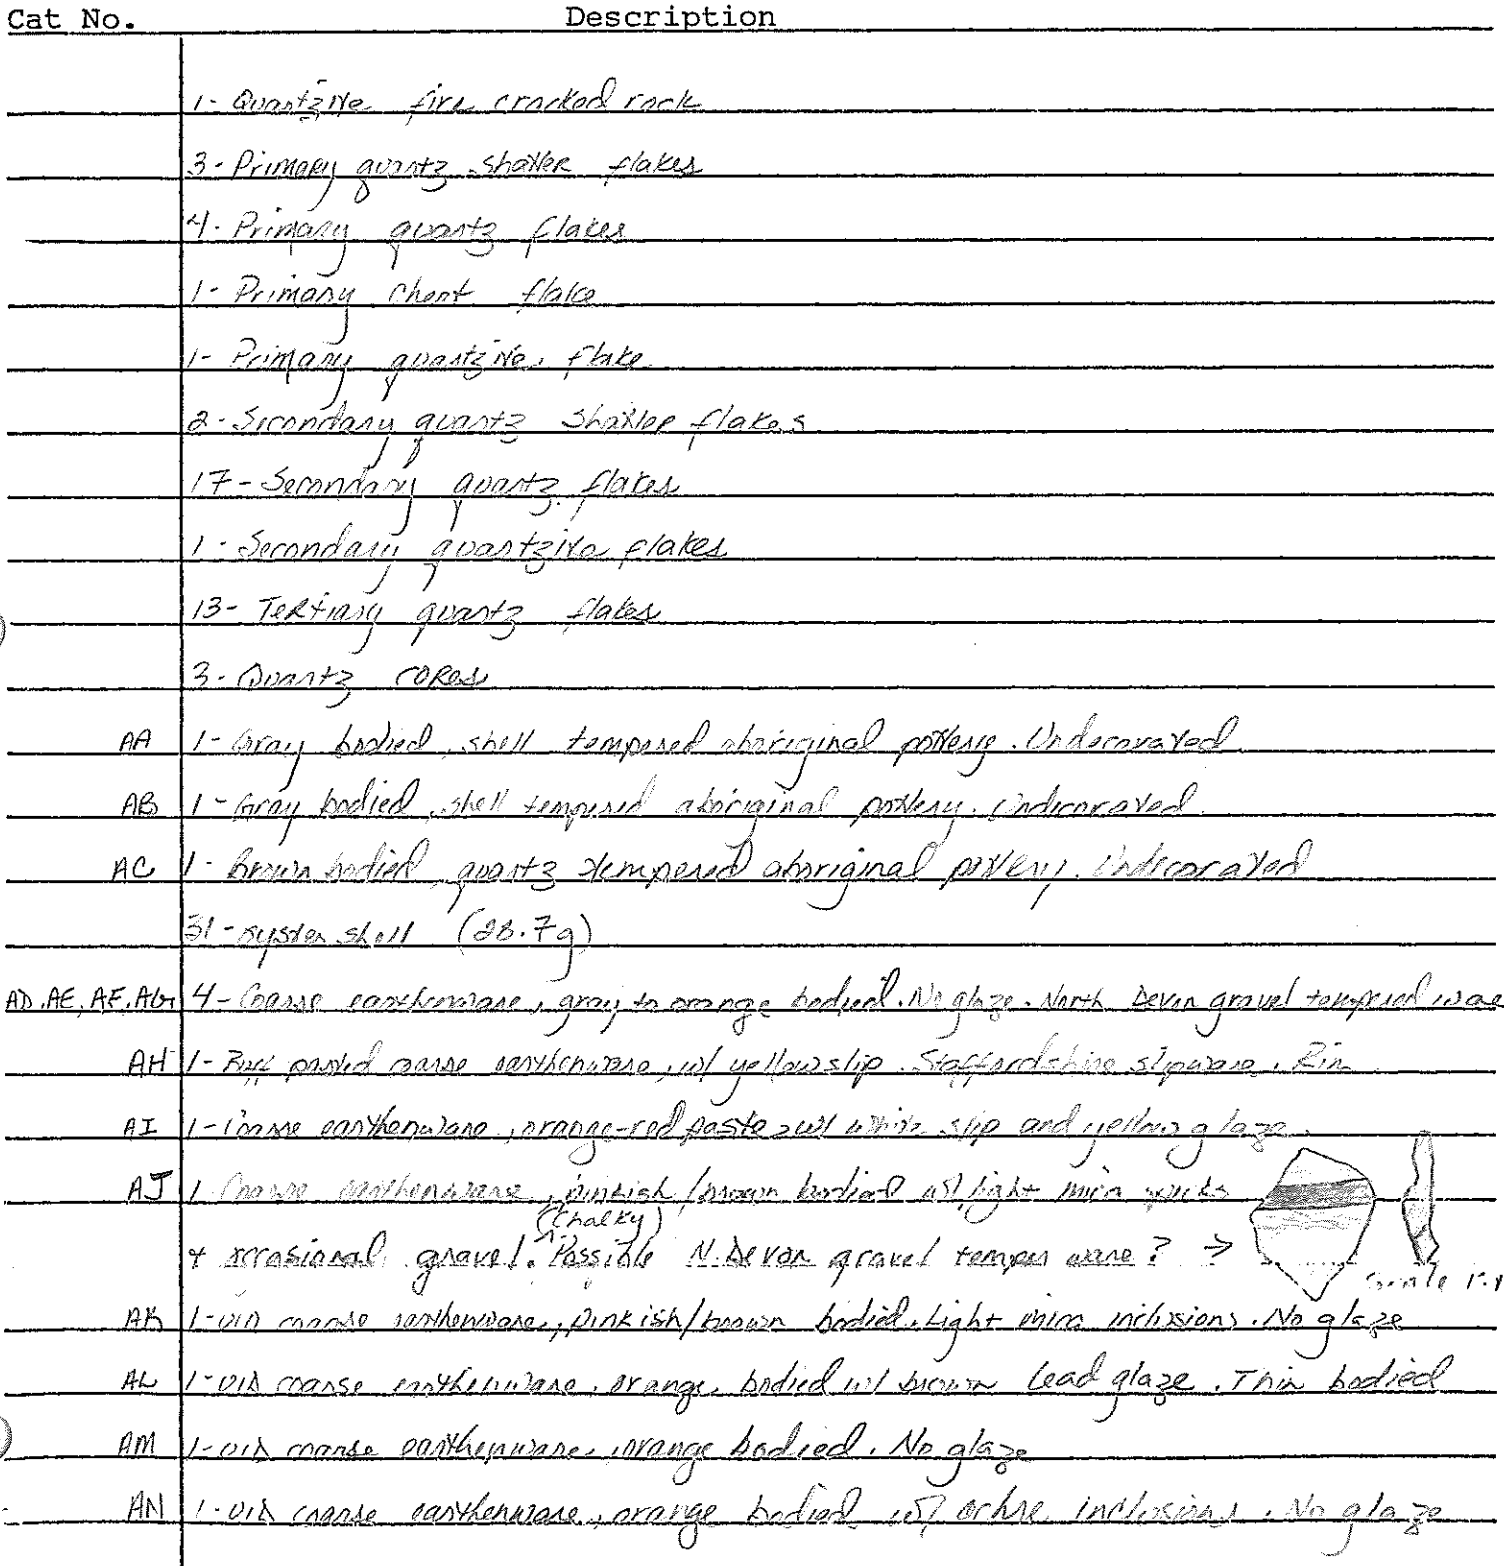 Cat No. Description
1- Quartzite fire cracked rock
3- Primary quartz shatter flakes
4- Primary quartz flakes
1- Primary chert flake
1- Primary quartzite flake
2- Secondary quartz shatter flakes
17- Secondary quartz flakes
1- Secondary quartzite flakes
13- Tertiary quartz flakes
3- Quartz cores
AA 1- Gray bodied, shell tempered aboriginal pottery. Undecorated.
AB 1- Gray bodied, shell tempered aboriginal pottery. Undecorated.
AC 1- Brown bodied, quartz tempered aboriginal pottery. Undecorated
31- oyster shell (28.7g)
AD, AE, AF, AG 4- Coarse earthenware, gray to orange bodied. No glaze. North Devon gravel tempered ware
AH 1- Buff pasted coarse earthenware, w/ yellow slip. Staffordshire slipware. Rim
AI 1- Coarse earthenware, orange-red paste w/ white slip and yellow glaze.
AJ 1 Coarse earthenware, pinkish/brown bodied w/ light mica
(Chalky)
+ occasional gravel. Possible N. Devon gravel temper ware? → Scale 1:1
AK 1- UID coarse earthenware, pinkish/brown bodied. Light mica inclusions. No glaze
AL 1- UID coarse earthenware, orange bodied w/ brown lead glaze. Thin bodied
AM 1- UID coarse earthenware, orange bodied. No glaze
AN 1- UID coarse earthenware, orange bodied w/ ochre inclusions. No glaze